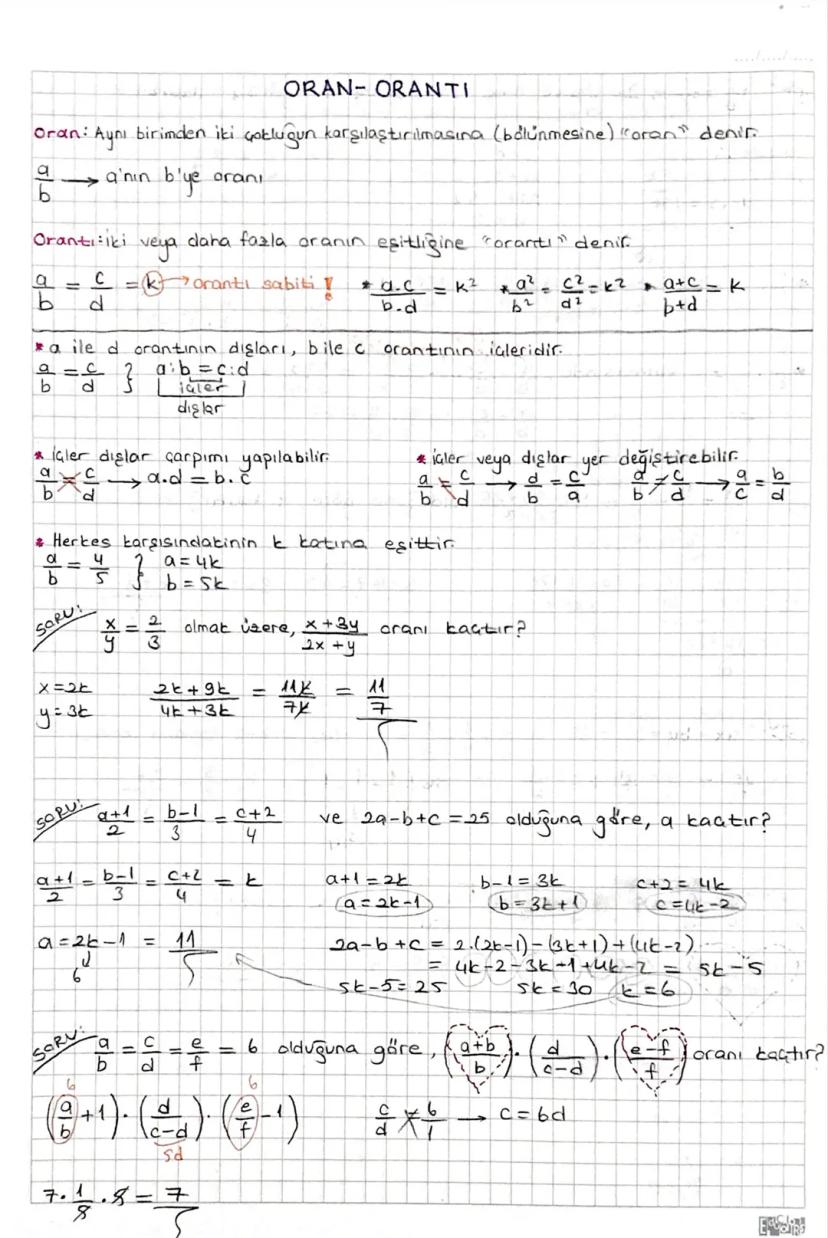 ORAN-ORANTI
Oran: Aynı birimden iki çokluğun karşılaştırılmasına (bölünmesine) "oran" denir.
a/b → a'nın b'ye oranı
Orantı: iki veya daha fazla oranın eşitliğine "orantı" denir.
a/b = c/d = k → orantı sabiti ! * a.c/b.d = k² * a²/b² = c²/d² = k² * a+c/b+d = k
* a ile d orantının dışları, b ile c orantının içleridir.
a/b = c/d } a:b = c:d
içler
dışlar
* içler dışlar çarpımı yapılabilir.
a/b = c/d → a.d = b.c
* içler veya dışlar yer değiştirebilir.
a/b = c/d → d/b = c/a a/b = c/d → a/c = b/d
* Herkes karşısındakinin k katına eşittir.
a/b = 4/5 } a = 4k
b = 5k
SORU: x/y = 2/3 olmak üzere, x+3y/2x+y oranı kaçtır?
x = 2k
y = 3k
2k+9k/4k+3k = 11k/7k = 11/7
SORU: a+1/2 = b-1/3 = c+2/4 ve 2a-b+c = 25 olduğuna göre, a kaçtır?
a+1/2 = b-1/3 = c+2/4 = k a+1 = 2k b-1 = 3k c+2 = 4k
a = 2k-1 b = 3k+1 c = 4k-2
a = 2k-1 = 11
6
2a-b+c = 2.(2k-1)-(3k+1)+(4k-2)
= 4k-2-3k-1+4k-2 = 5k-5
5k-5 = 25 5k = 30 k = 6
SORU: a/b = c/d = e/f = 6 olduğuna göre, (a+b/b).(d/c-d).(e-f/f) oranı kaçtır?
6 6
(a/b+1).(d/c-d).(e/f-1) c/d = 6/1 → c = 6d
5d
7.1/5.5 = 7